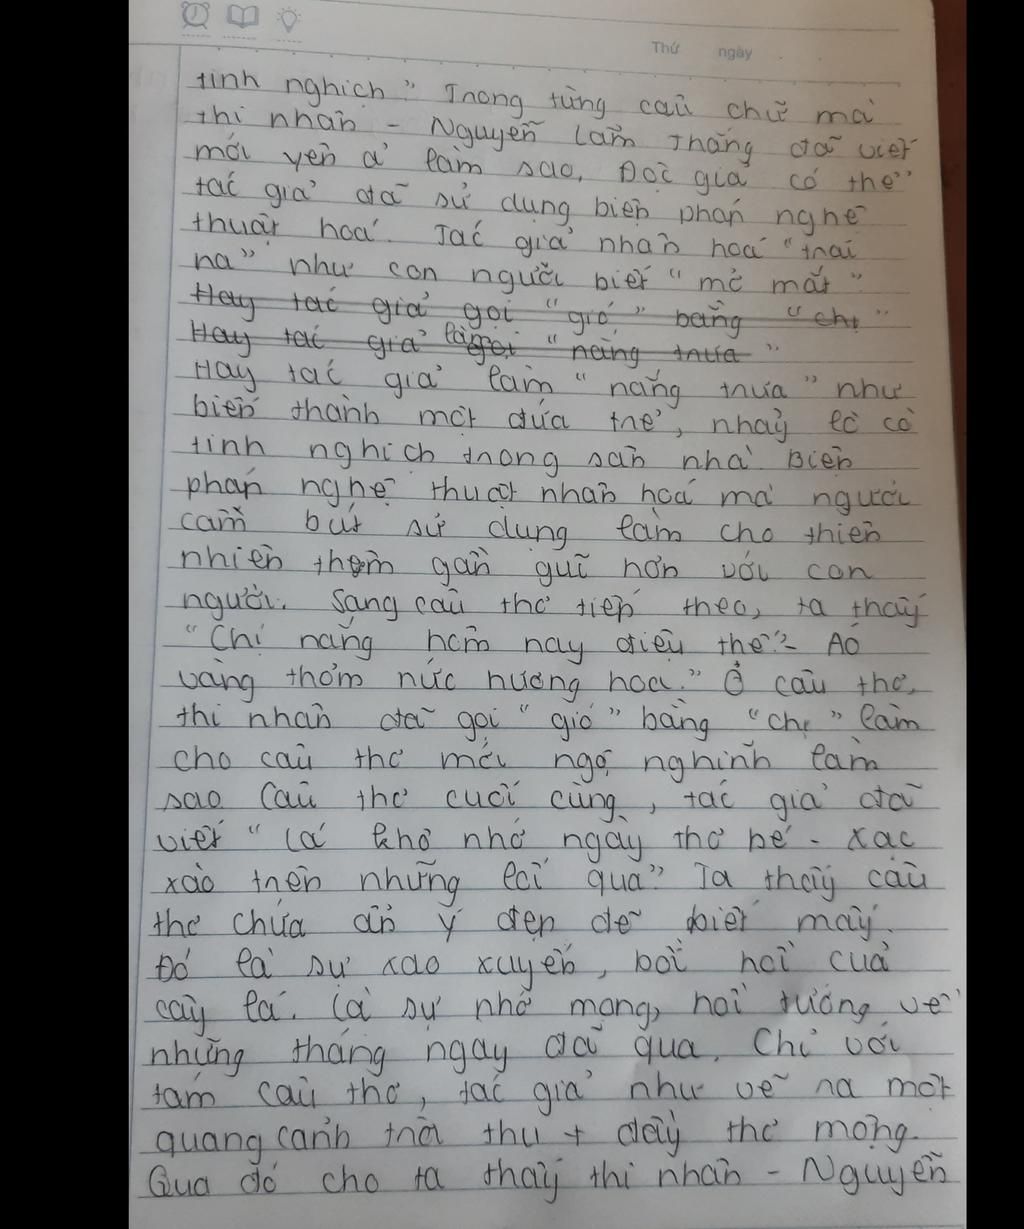 Thứ ngày
tinh nghịch" Trong từng câu chữ mà
thi nhân - Nguyễn Lãm Thắng đã viết
mới yên ả làm sao, Đọc giả có thể
tác giả đã sử dụng biện pháp nghệ
thuật hoá. Tác giả nhân hoá "trái
na" như con người biết "mở mắt".
Hay tác giả gọi "gió" bằng "chị"
Hay tác giả làm gọi "nắng trưa"
Hay tác giả làm "nắng trưa" như
biến thành một đứa trẻ, nhảy lò cò
tinh nghịch trong sân nhà. Biện
pháp nghệ thuật nhân hoá mà người
cầm bút sử dụng làm cho thiên
nhiên thêm gần gũi hơn với con
người. Sang câu thơ tiếp theo, ta thấy
"Chị nắng hôm nay điệu thế? - Áo
vàng thơm nức hương hoa." Ở câu thơ,
thi nhân đã gọi "gió" bằng "chị" làm
cho câu thơ mới ngộ nghĩnh làm
sao Câu thơ cuối cùng, tác giả đã
viết "Lá khô nhớ ngày thơ bé - Xạc
xào trên những lối qua" Ta thấy câu
thơ chứa ẩn ý đẹp đẽ biết mấy.
Đó là sự xao xuyến, bồi hồi của
cây lá. Là sự nhớ mong, hồi tưởng về
những tháng ngày đã qua. Chỉ với
tám câu thơ, tác giả như vẽ ra một
quang cảnh trời thu + đầy thơ mộng.
Qua đó cho ta thấy thi nhân - Nguyễn